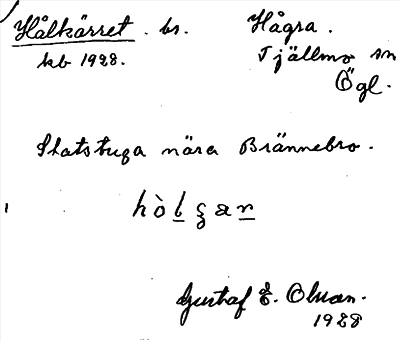 Hålkärret. bs. Hågra.
kb 1928. Tjällmo sn
Ögl.
Statstuga nära Brännebro.
hò
Gustaf E. Olsson.
1928